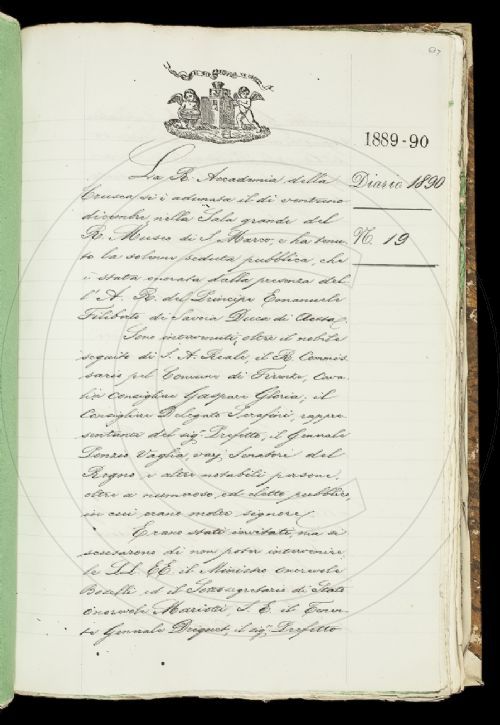 67
1889-90
Diario 1890
N. 19
La R. Accademia della
Crusca si è adunata il dì ventuno
dicembre nella Sala grande del
R. Museo di S. Marco, e ha tenu-
to la solenne seduta pubblica, che
è stata onorata dalla presenza del-
l'A. R. del Principe Emanuele
Filiberto di Savoia Duca di Aosta.
Sono intervenuti, oltre il nobile
seguito di S. A. Reale, il R. Commis-
sario pel Comune di Firenze, Cava-
lier Consigliere Gaspare Gloria; il
Consigliere Delegato Serafini, rappre-
sentanza del sig. Prefetto; il Generale
Ponzio Vaglia, varj Senatori del
Regno, e altre notabili persone,
oltre a numeroso ed eletto pubblico,
in cui erano molte signore.
Erano stati invitati, ma si
scusarono di non poter intervenire
le LL. EE. il Ministro onorevole
Boselli ed il Sottosegretario di Stato
onorevole Mariotti, S. E. il Tenen-
te Generale Driquet, il sig. Prefetto